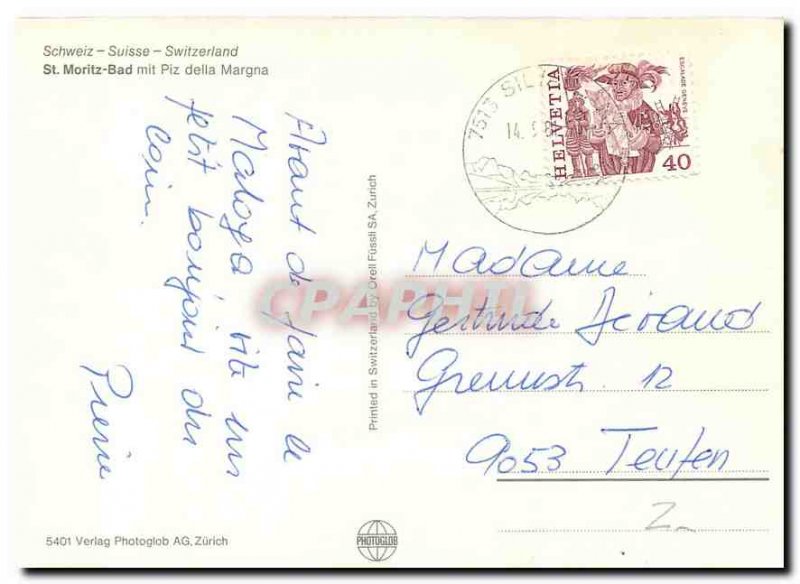 Schweiz – Suisse – Switzerland
St. Moritz-Bad mit Piz della Margna
Avant de faire le
Maloya vite un
petit bonjour du
coin.
Pierre
Printed in Switzerland by Orell Füssli SA, Zurich
7513 SIL
14.
HELVETIA
ESCALADE GENÈVE
40
Madame
Gertrude
12
9053 Teufen
CPAPHIL
5401 Verlag Photoglob AG, Zürich
PHOTOGLOB